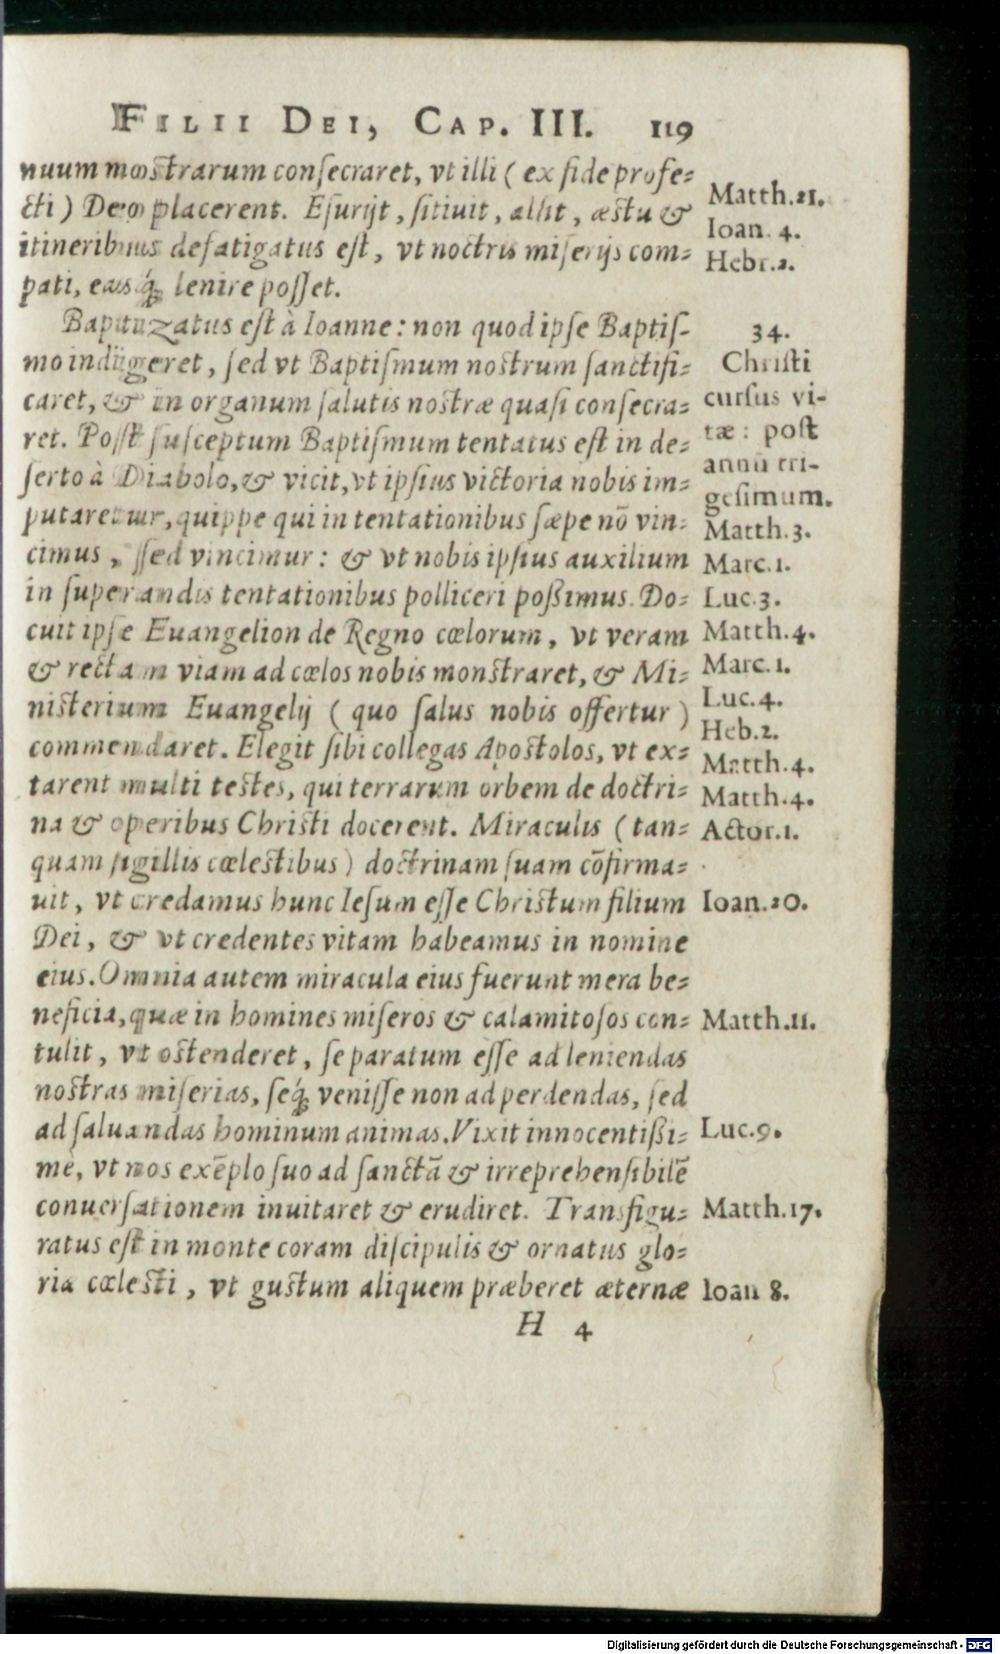 FILII DEI, CAP. III. 119
nuum nostrarum consecraret, vt illi ( ex fide profe=
cti ) Deo placerent. Esurijt, sitiuit, alsit, æstu &
itineribus defatigatus est, vt noctris miserijs com=
pati, easq́; lenire posset.
Baptizatus est à Ioanne: non quod ipse Baptis-
mo indigeret, sed vt Baptismum nostrum sanctifi=
caret, & in organum salutis nostræ quasi consecra=
ret. Post susceptum Baptismum tentatus est in de=
serto à Diabolo, & vicit, vt ipsius victoria nobis im=
putaretur, quippe qui in tentationibus sæpe nō vin=
cimus, sed vincimur: & vt nobis ipsius auxilium
in superandis tentationibus polliceri possimus. Do=
cuit ipse Euangelion de Regno cœlorum, vt veram
& rectam viam ad cœlos nobis monstraret, & Mi=
nisterium Euangelij ( quo salus nobis offertur )
commendaret. Elegit sibi collegas Apostolos, vt ex=
tarent multi testes, qui terrarum orbem de doctri=
na & operibus Christi docerent. Miraculis ( tan=
quam sigillis cœlestibus ) doctrinam suam cōfirma=
uit, vt credamus hunc Iesum esse Christum filium
Dei, & vt credentes vitam habeamus in nomine
eius. Omnia autem miracula eius fuerunt mera be=
neficia, quæ in homines miseros & calamitosos con=
tulit, vt ostenderet, se paratum esse ad leniendas
nostras miserias, seq́; venisse non ad perdendas, sed
ad saluandas hominum animas. Vixit innocentissi=
mè, vt nos exēplo suo ad sanctā & irreprehensibilē
conuersationem inuitaret & erudiret. Transfigu=
ratus est in monte coram discipulis & ornatus glo=
ria cœlesti, vt gustum aliquem præberet æternæ
H 4
Matth.21.
Ioan. 4.
Hebr.2.
34.
Christi
cursus vi-
tæ: post
annū tri-
gesimum.
Matth.3.
Marc.1.
Luc.3.
Matth.4.
Marc.1.
Luc.4.
Heb.2.
Matth.4.
Matth.4.
Actor.1.
Ioan.20.
Matth.11.
Luc.9.
Matth.17.
Ioan 8.
Digitalisierung gefördert durch die Deutsche Forschungsgemeinschaft - DFG